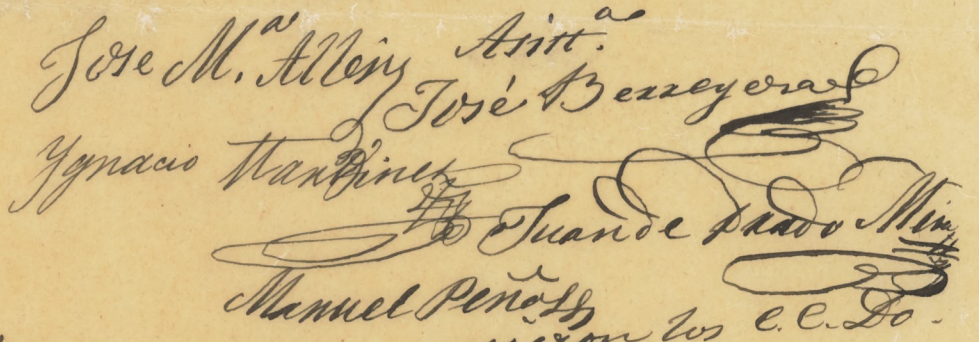 Jose M.ª Allen Asist.ª
José Berreyesa
Ygnacio Martinez
Juan de Prado Mesa
Manuel Peña
los C. C. Do.